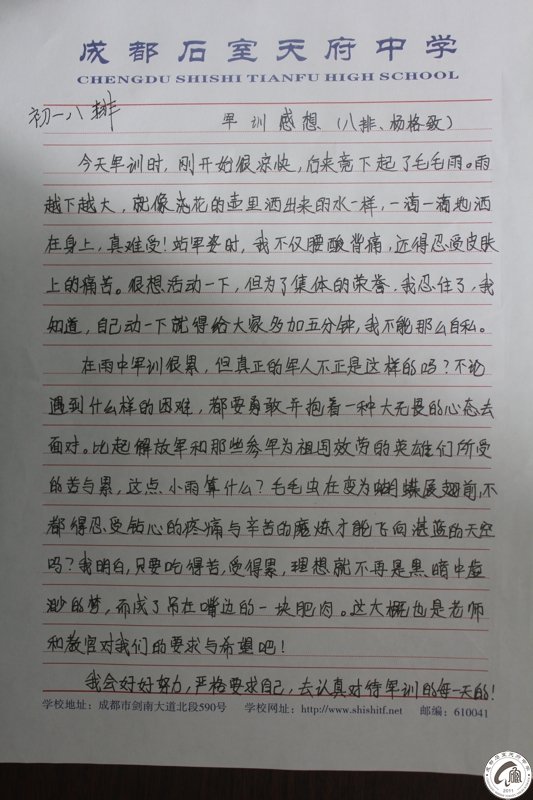 成都石室天府中学
CHENGDU SHISHI TIANFU HIGH SCHOOL
初一八排
军训感想（八排、杨格致）
今天军训时，刚开始很凉快，后来竟下起了毛毛雨。雨
越下越大，就像浇花的壶里洒出来的水一样，一滴一滴地洒
在身上，真难受！站军姿时，我不仅腰酸背痛，还得忍受皮肤
上的痛苦。很想活动一下，但为了集体的荣誉，我忍住了，我
知道，自己动一下就得给大家多加五分钟，我不能那么自私。
在雨中军训很累，但真正的军人不正是这样的吗？不论
遇到什么样的困难，都要勇敢并抱着一种大无畏的心态去
面对。比起解放军和那些参军为祖国效劳的英雄们所受
的苦与累，这点小雨算什么？毛毛虫在变为蝴蝶展翅前，不
都得忍受钻心的疼痛与辛苦的磨炼才能飞向湛蓝的天空
吗？我明白，只要吃得苦，受得累，理想就不再是黑暗中虚
渺的梦，而成了吊在嘴边的一块肥肉。这大概也是老师
和教官对我们的要求与希望吧！
我会好好努力，严格要求自己，去认真对待军训的每一天的！
学校地址：成都市剑南大道北段590号 学校网址：http://www.shishitf.net 邮编：610041
2011